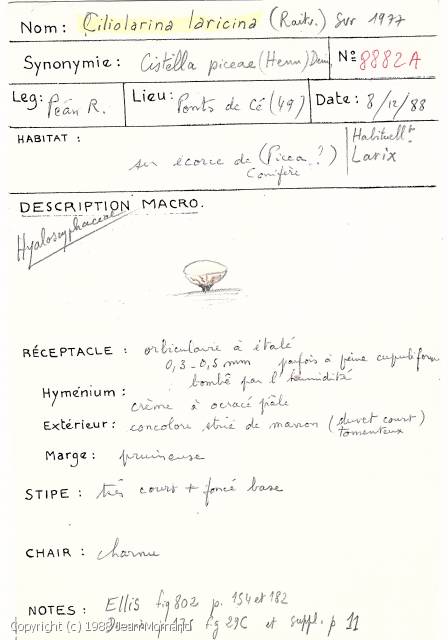 Nom: Ciliolarina laricina (Raitv.) Svr 1977
Synonymie: Cistella piceae (Henn) Den, Nº 8882A
Leg: Péan R. Lieu: Ponts de Cé (49) Date: 8/12/88
HABITAT: Habituellt
sur écorce de (Picea ?) Larix
Conifère
DESCRIPTION MACRO.
Hyaloscyphaceae
RÉCEPTACLE : orbiculaire à étalé
0,3-0,5 mm parfois à peine cupuliforme
bombé par l'humidité
Hyménium:
crème à ocracé pâle
Extérieur: concolore strié de marron (duvet court)
tomenteux
Marge: pruineuse
STIPE : très court + foncé base
CHAIR : charnue
NOTES : Ellis fig 802 p. 154 et 182
p 175 fig 29C et suppl. p 11
Copyright (c) 1988 Jean Mornand